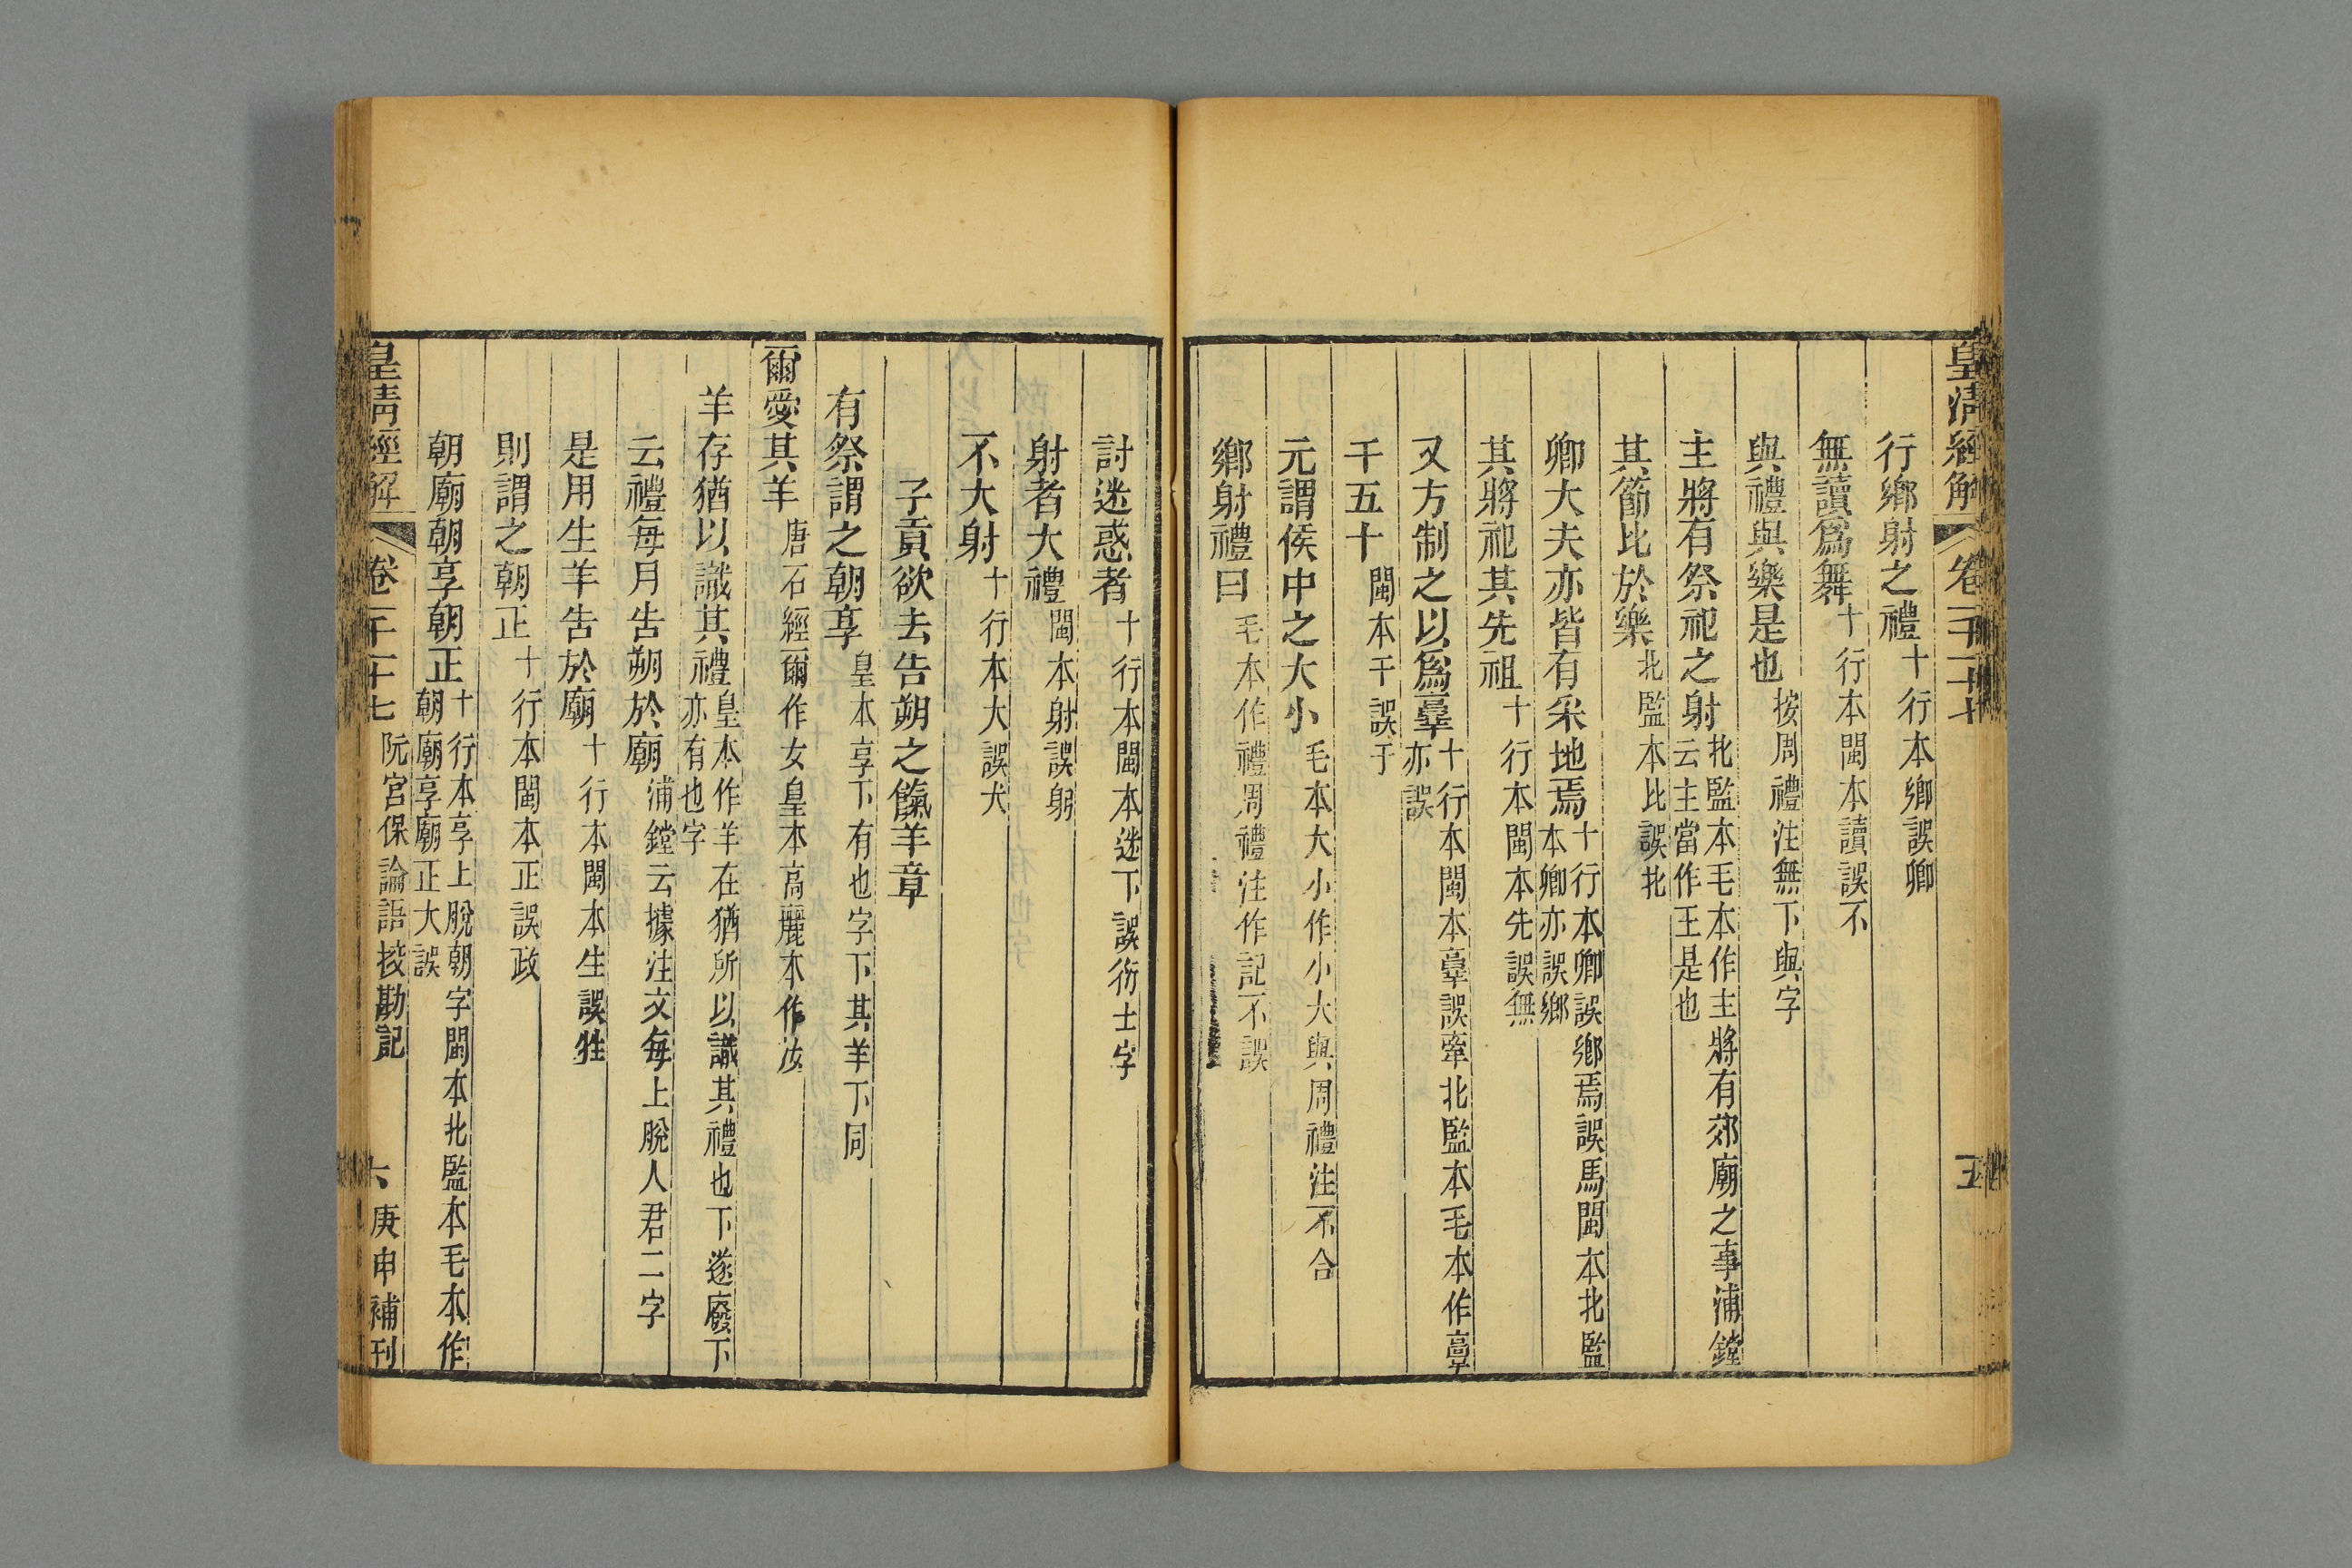 皇清經解 卷一千二十七 五
行鄉射之禮十行本鄉誤卿
無讀爲舞十行本閩本讀誤不
與禮與樂是也按周禮注無下與字
主將有祭祀之射北監本毛本作主將有郊廟之事浦鏜云主當作王是也
其節比於樂北監本比誤北
卿大夫亦皆有采地焉十行本卿誤鄉焉誤馬閩本北監本卿亦誤鄉
其將祀其先祖十行本閩本先誤無
又方制之以爲𦎧十行本閩本𦎧誤牽北監本毛本作𦎧亦誤
千五十閩本千誤于
元謂侯中之大小毛本大小作小大與周禮注不合
鄉射禮曰毛本作禮周禮注作記不誤
討迷惑者十行本閩本迷下誤衍士字
射者大禮閩本射誤躬
不大射十行本大誤犬
子貢欲去告朔之餼羊章
有祭謂之朝享皇本享下有也字下其羊下同
爾愛其羊唐石經爾作女皇本高麗本作汝
羊存猶以識其禮皇本作羊在猶所以識其禮也下遂廢下亦有也字
云禮每月告朔於廟浦鏜云據注文每上脫人君二字
是用生羊告於廟十行本閩本生誤牲
則謂之朝正十行本閩本正誤政
朝廟朝享朝正十行本享上脫朝字閩本北監本毛本作朝廟享廟正大誤
皇清經解 卷一千二十七 阮宮保論語挍勘記 六 庚申補刊